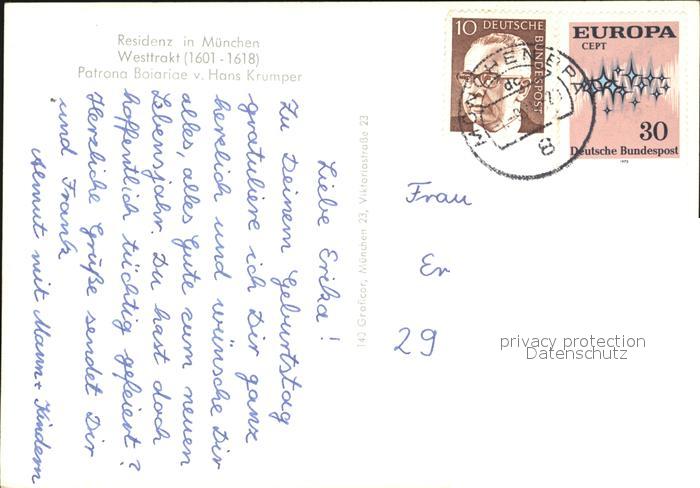 Residenz in München
Westtrakt (1601-1618)
Patrona Boiariae v. Hans Krumper
Liebe Erika!
Zu Deinem Geburtstag
gratuliere ich Dir ganz
herzlich und wünsche Dir
alles, alles Gute zum neuen
Lebensjahr. Du hast doch
hoffentlich tüchtig gefeiert?
Herzliche Grüße sendet Dir
und Frank
Almut mit Mann + Kindern
140 Graficor, München 23, Viktoriastraße 23
10 DEUTSCHE
BUNDESPOST
EUROPA
CEPT
30
Deutsche Bundespost
1972
Frau
Er
29
privacy protection
Datenschutz